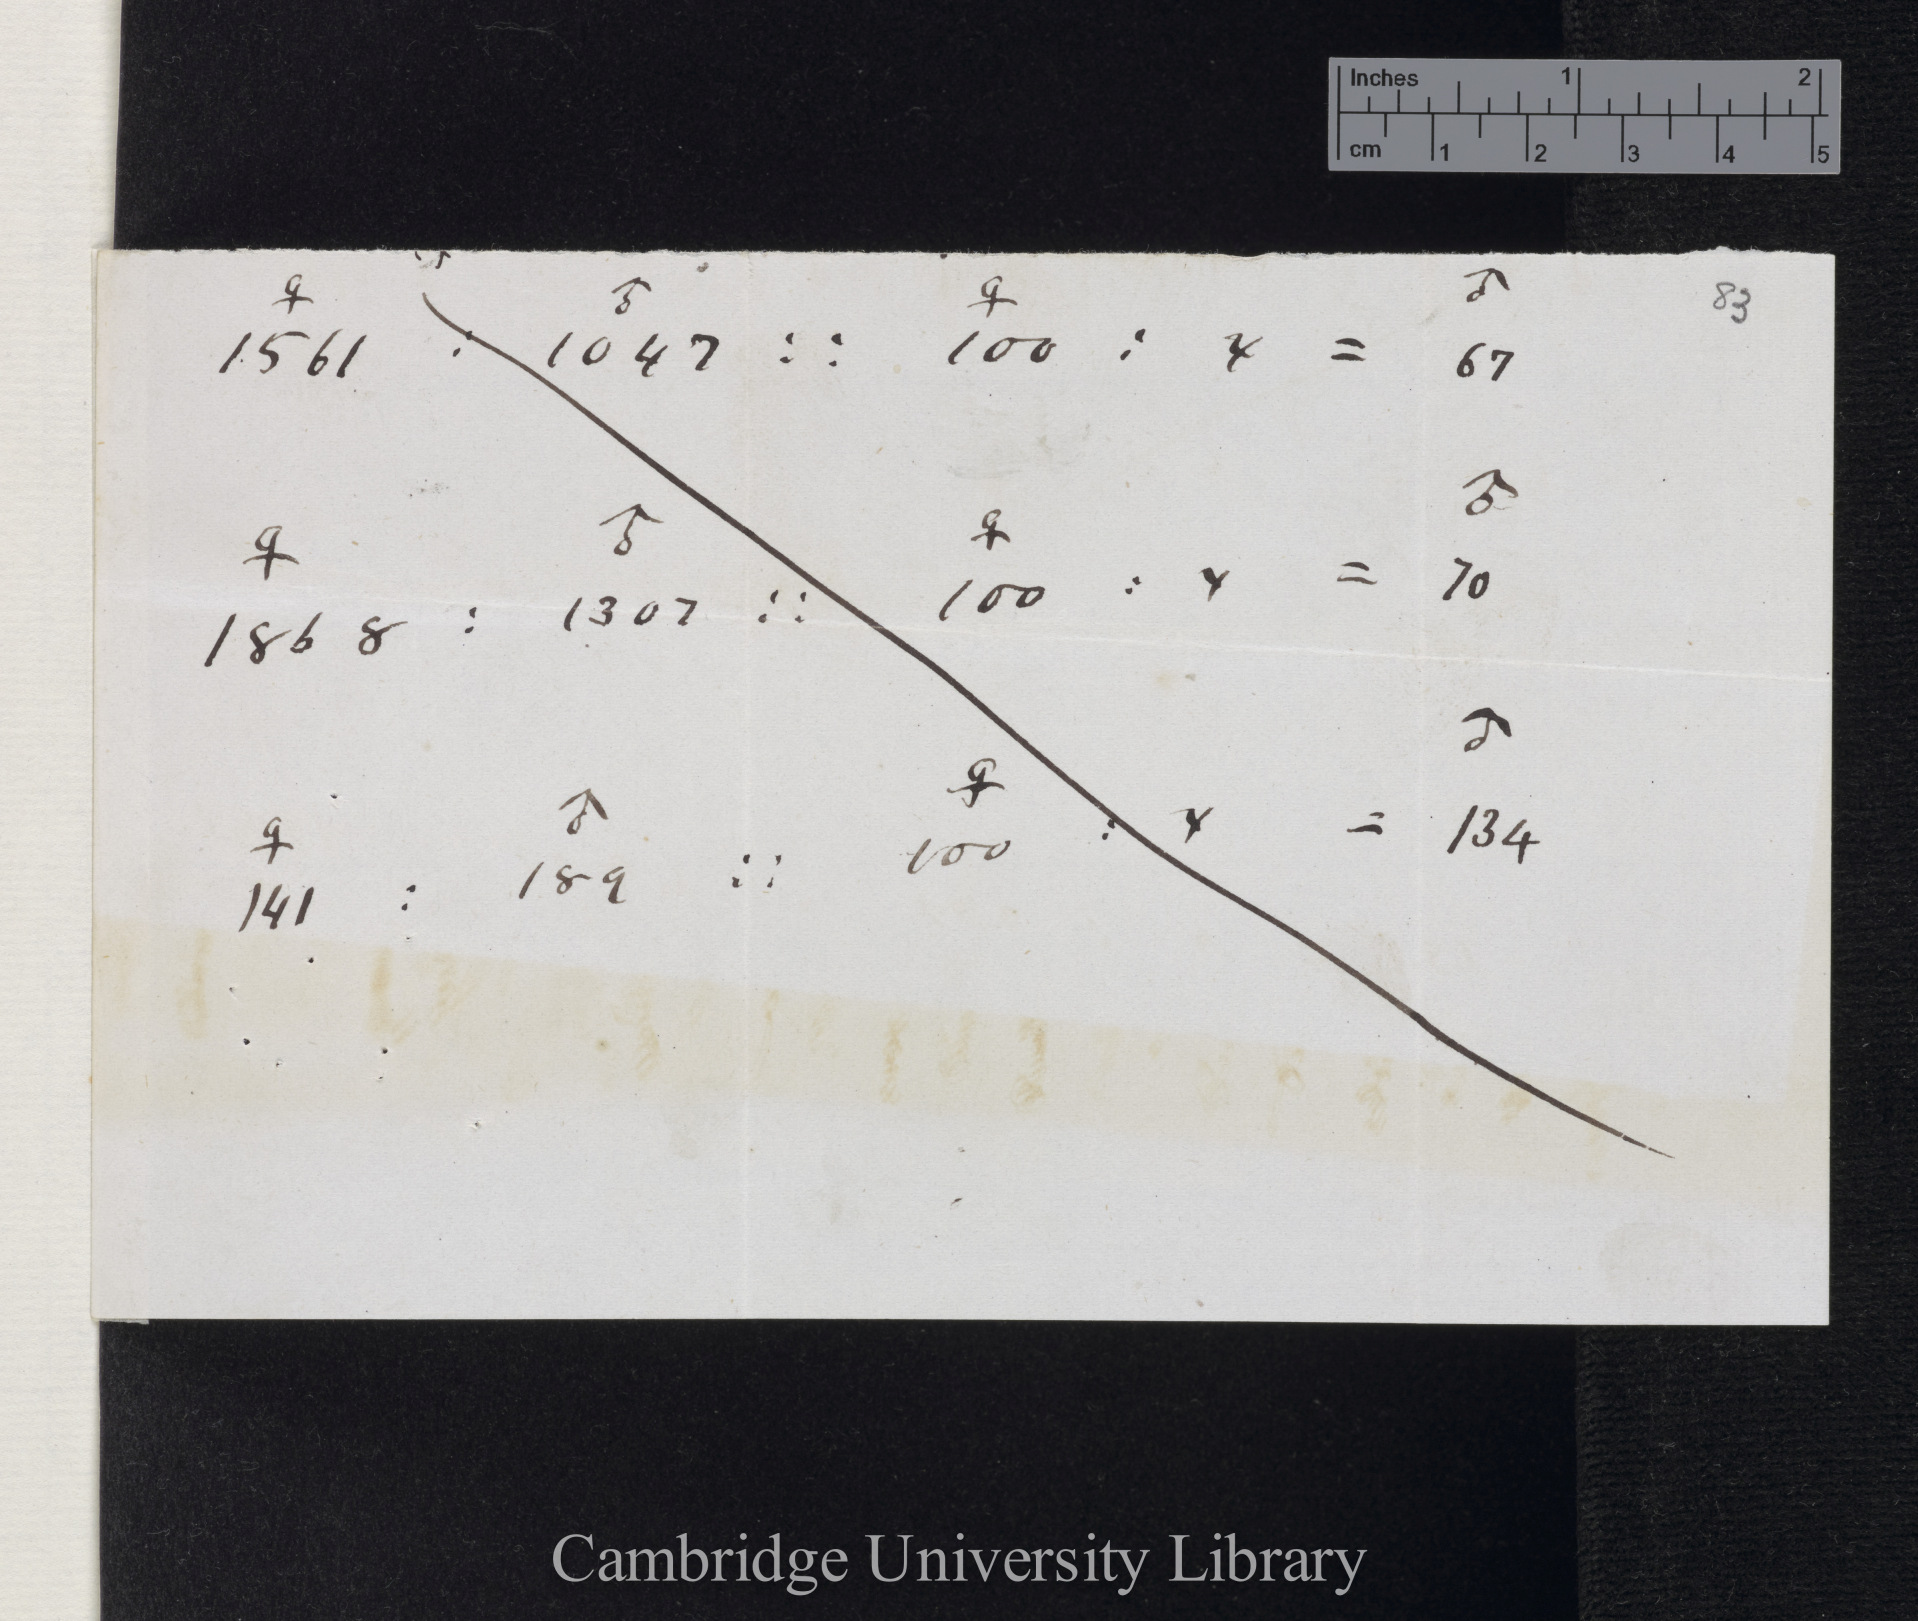 Inches 1 2
cm 1 2 3 4 5
83
♀ ♂ ♀ ♂
1561 : 1047 :: 100 : x = 67
♀ ♂ ♀ ♂
1868 : 1307 :: 100 : x = 70
♀ ♂ ♀ ♂
141 : 189 :: 100 : x = 134
Cambridge University Library